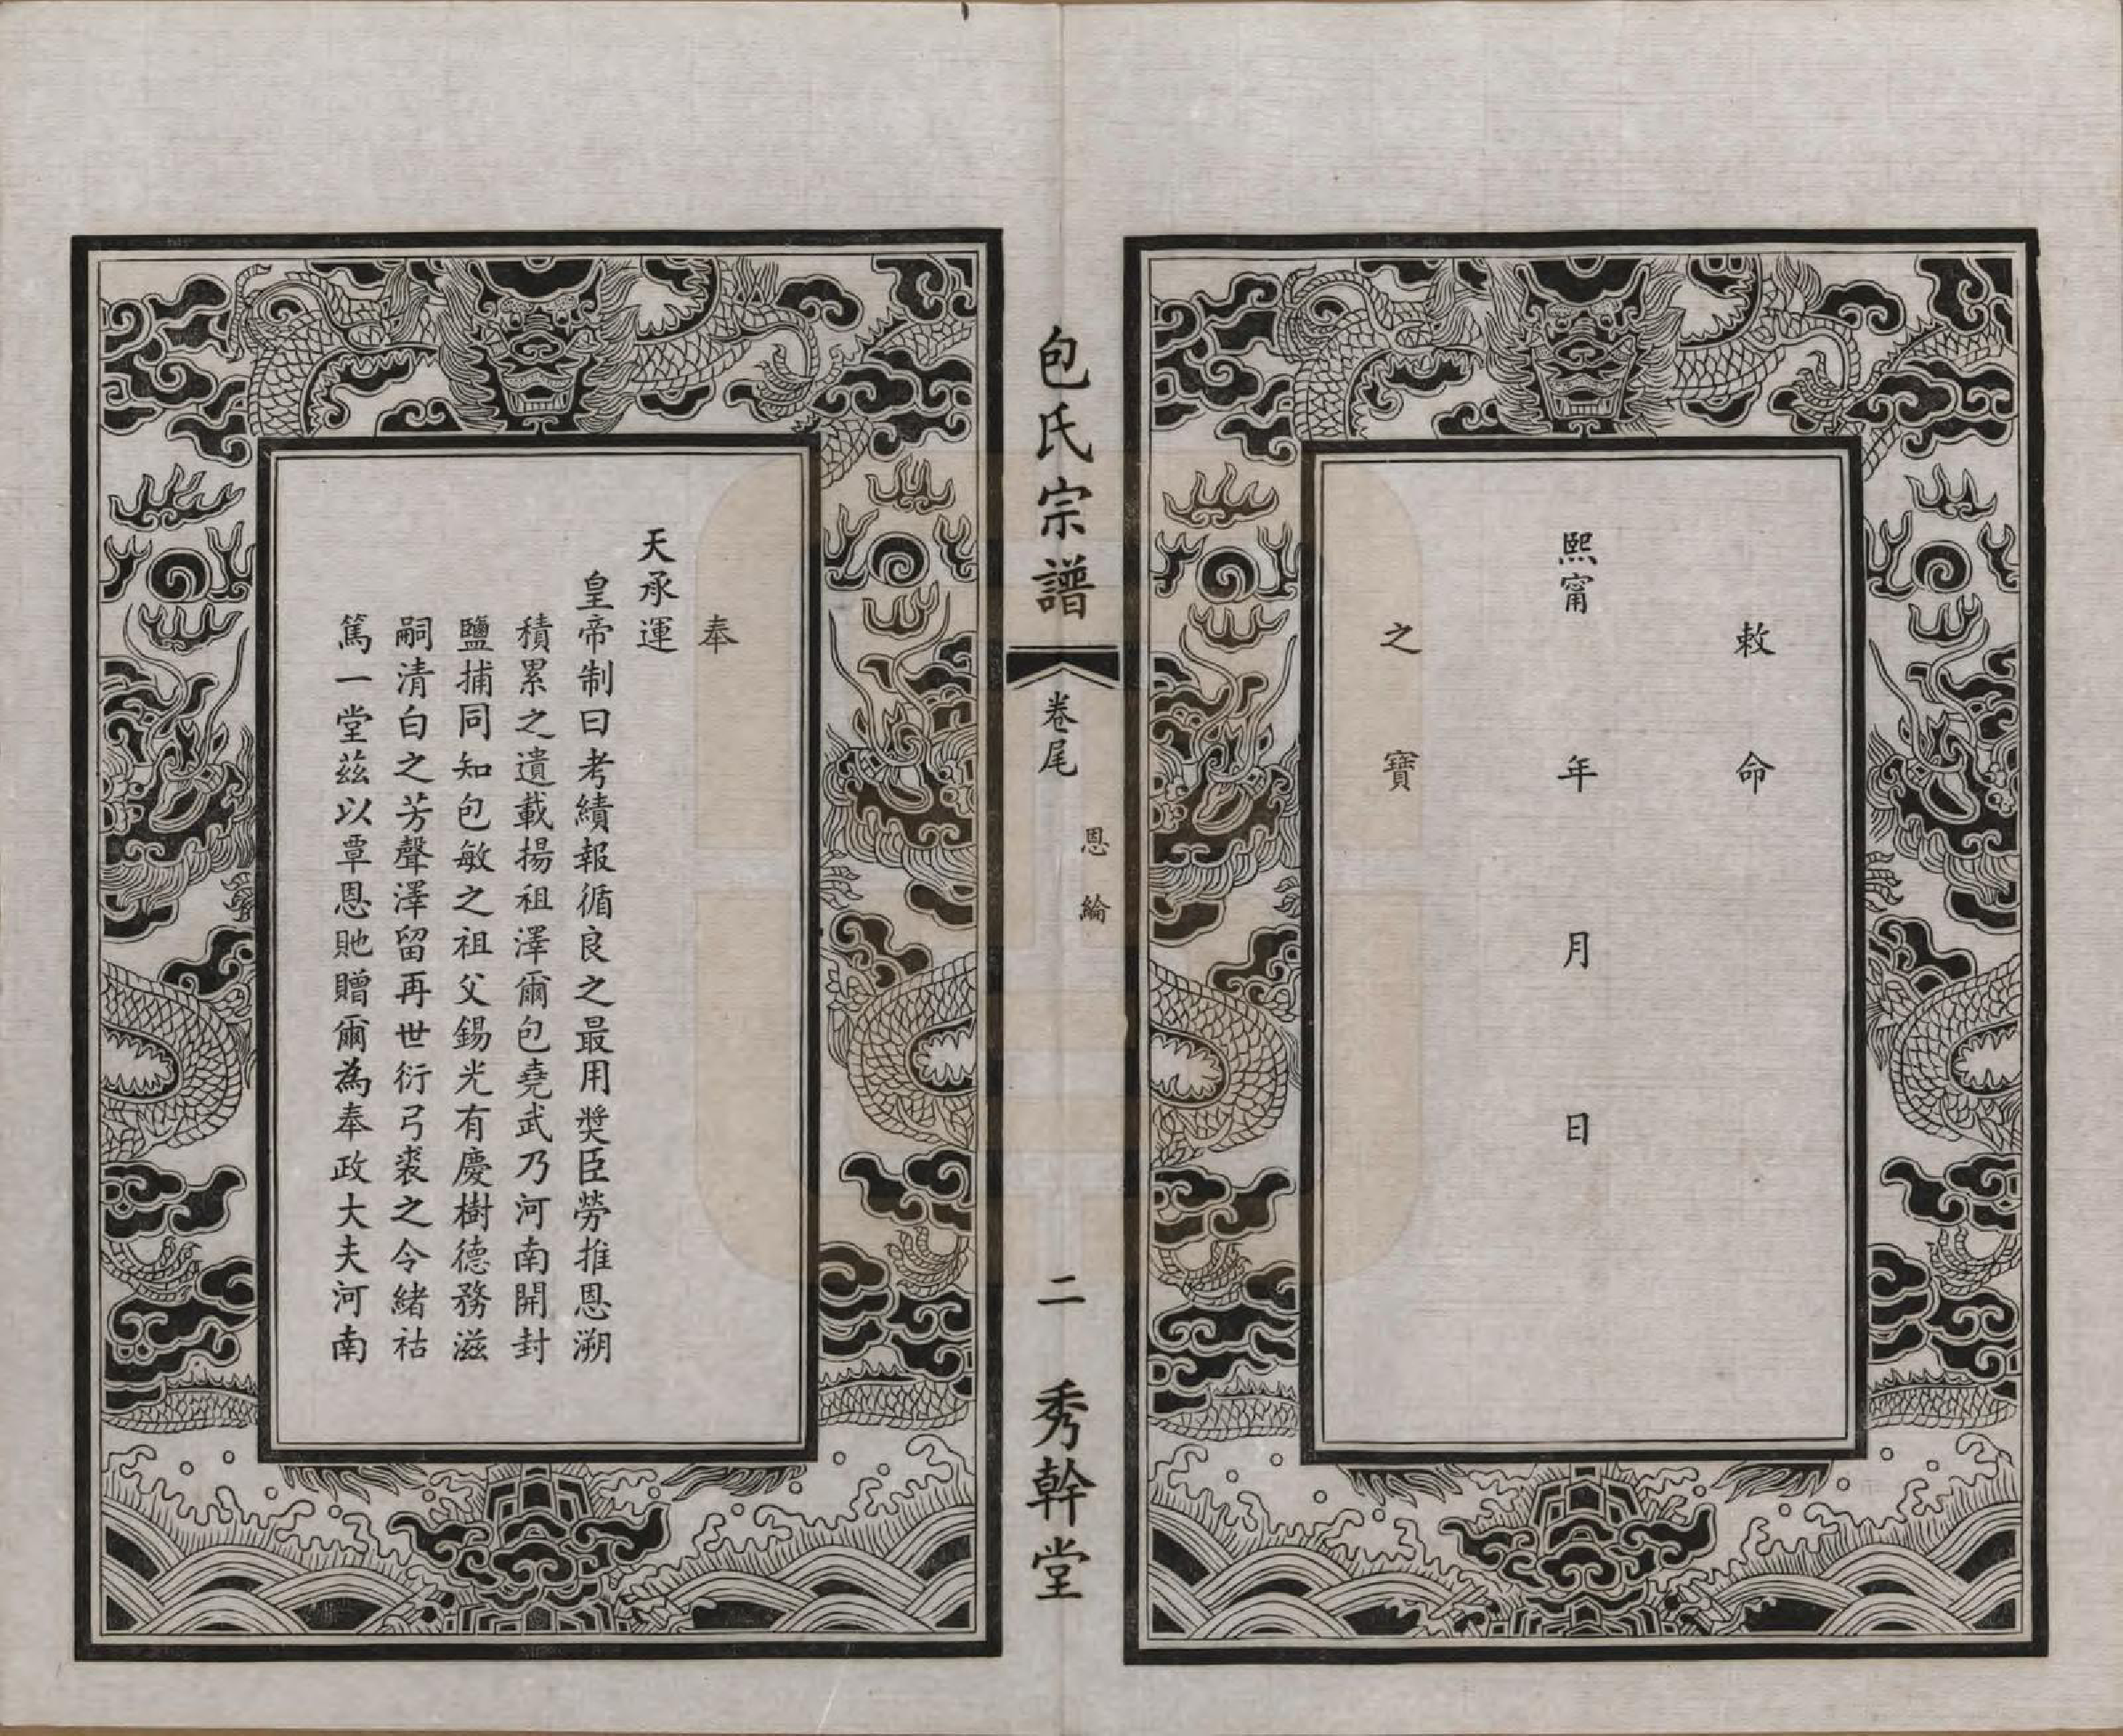 敕命
熙甯年月日
之寶
包氏宗譜
卷尾
恩綸
二
秀幹堂
奉
天承運
皇帝制曰考績報循良之最用奬臣勞推恩溯
積累之遺載揚祖澤爾包堯武乃河南開封
鹽捕同知包敏之祖父錫光有慶樹德務滋
嗣清白之芳聲澤留再世衍弓裘之令緒祜
篤一堂茲以覃恩貤贈爾為奉政大夫河南